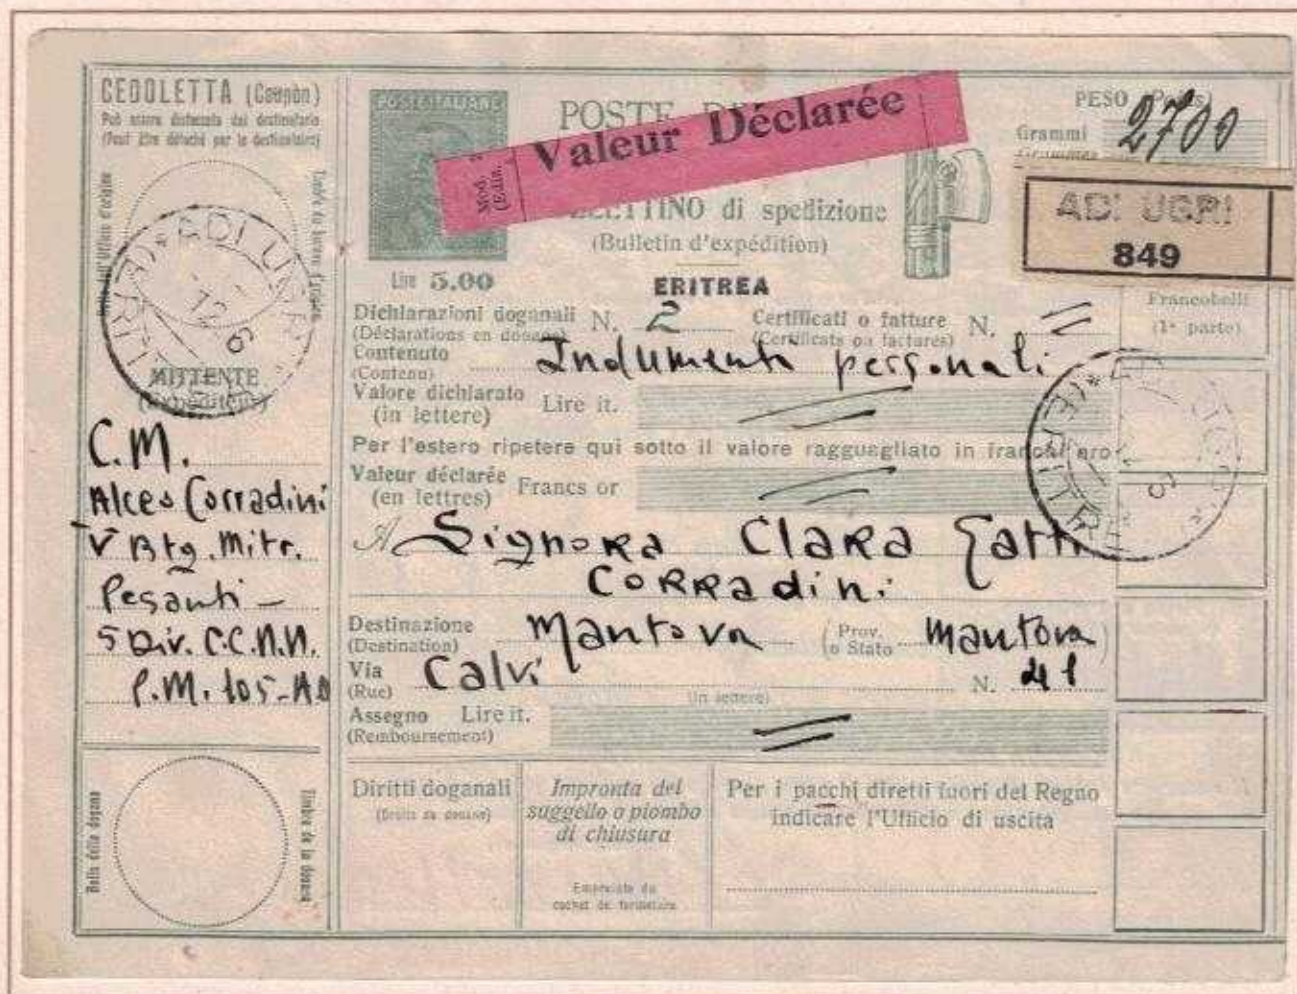 CEDOLETTA (Coupon)
Può essere distaccata dal destinatario
(Peut être détaché par le destinataire)
Bollo dell'Ufficio d'origine
Timbre du bureau d'origine
ADI UGRI
12 6
MITTENTE
(Expéditeur)
C.M.
Alceo Corradini
V Btg. Mitr.
Pesanti -
5 Div. C.C.N.N.
P.M. 105-AO
Bollo della dogana
Timbre de la douane
POSTE ITALIANE
Lire 5.00
POSTE
Valeur Déclarée
Mod.
(Ediz.
BOLLETTINO di spedizione
(Bulletin d'expédition)
ERITREA
PESO (Poids)
Grammi 2700
Grammes
ADI UGRI
849
Dichiarazioni doganali N. 2 Certificati o fatture N. =
(Déclarations en douane) (Certificats ou factures)
Contenuto Indumenti personali
(Contenu)
Valore dichiarato Lire it.
(in lettere)
Per l'estero ripetere qui sotto il valore ragguagliato in franchi oro
Valeur déclarée Francs or
(en lettres)
A Signora Clara
Corradini
Destinazione Mantova (Prov. o Stato Mantova)
(Destination)
Via Calvi N. 41
(Rue)
(in lettere)
Assegno Lire it. =
(Remboursement)
Diritti doganali
(Droits de douane)
Impronta del
suggello o piombo
di chiusura
Empreinte du
cachet de fermeture
Per i pacchi diretti fuori del Regno
indicare l'Ufficio di uscita
Francobolli
(1ª parte)